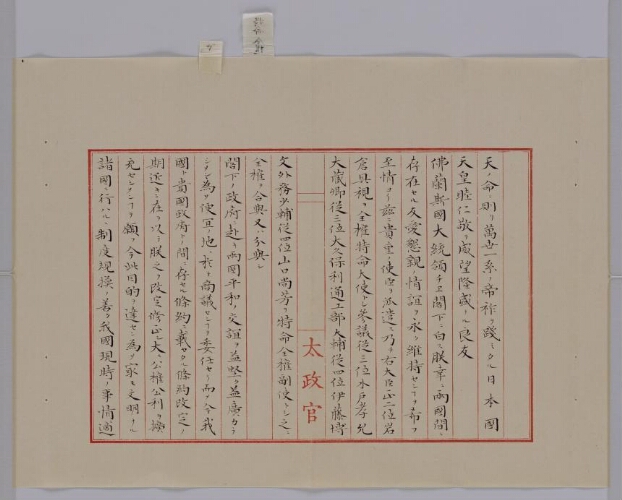 天ノ命ニ則リ萬世一系ノ帝祚ヲ践ミタル日本國
天皇睦仁敬テ威望隆盛ナル良友
佛蘭斯國大統領チエル閣下ニ白ス朕幸ニ両國間ニ
存在セル友愛懇親ノ情誼ヲ永ク維持センヿヲ希フ
至情ヨリ茲ニ貴重ノ使臣ヲ派遣シ乃チ右大臣正二位岩
倉具視ヲ全権特命大使トシ参議従三位木戸孝允
大蔵卿従三位大久保利通工部大輔従四位伊藤博
太政官
文外務少輔従四位山口尚芳ヲ特命全権副使トシ之ニ
全権ヲ合與又ハ分與シ
閣下ノ政府ニ赴キ両國平和ノ交誼ヲ益堅ク益廣カラ
シメン為メ使臣ノ地ニ於テ商議センヿヲ委任セリ而テ今我
國ト貴國政府ノ間ニ存セル條約ニ載タル條約改定ノ
期近キニ在ルヲ以テ朕之ヲ改定修正シ大ニ公権公利ヲ擴
充センヿヲ願フ今此目的ヲ達セン為メ家モ文明ナル
諸國ニ行ハルヽ制度現換ノ善ク我國現時ノ事情ニ適